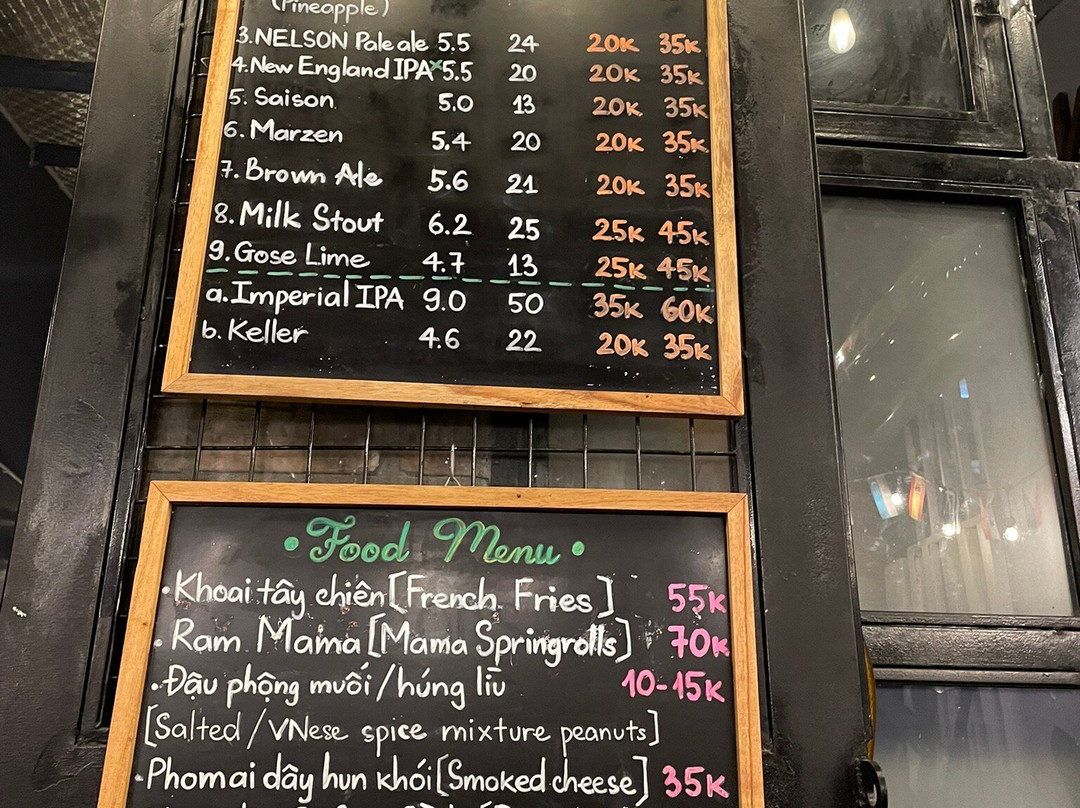 (Pineapple)
3.NELSON Pale ale 5.5 24 20K 35K
4.New England IPA* 5.5 20 20K 35K
5. Saison 5.0 13 20K 35K
6. Marzen 5.4 20 20K 35K
7. Brown Ale 5.6 21 20K 35K
8. Milk Stout 6.2 25 25K 45K
9. Gose Lime 4.7 13 25K 45K
a. Imperial IPA 9.0 50 35K 60K
b. Keller 4.6 22 20K 35K
• Food Menu •
• Khoai tây chiên [French Fries] 55K
• Ram Mama [Mama Springrolls] 70K
• Đậu phộng muối/húng lìu 10-15K
[Salted/VNese spice mixture peanuts]
• Phomai dây hun khói [Smoked cheese] 35K